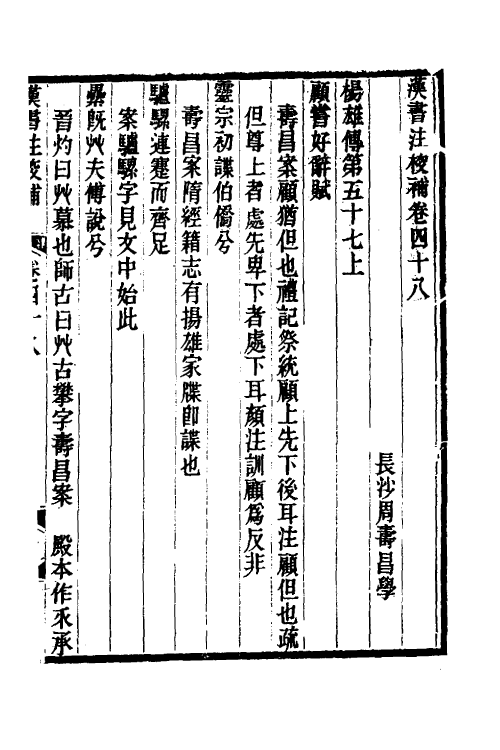 漢書注校補卷四十八
長沙周壽昌學
楊雄傳第五十七上
顧嘗好辭賦
壽昌案顧猶但也禮記祭統顧上先下後耳注顧但也疏
但尊上者處先卑下者處下耳顏注訓顧爲反非
靈宗初諜伯僑兮
壽昌案隋經籍志有揚雄家牒卽諜也
驢騾連蹇而齊足
案驢騾字見文中始此
纍旣㸚夫傅說兮
晉灼曰㸚慕也師古曰㸚古攀字壽昌案 殿本作氶承
漢書注校補 卷四十八